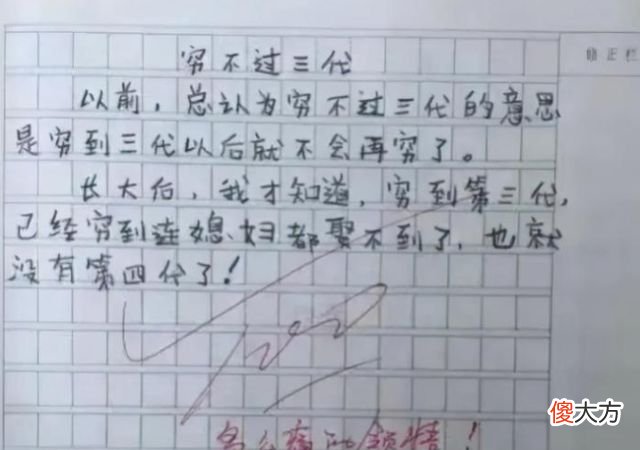 穷不过三代
修正栏
以前，总认为穷不过三代的意思
是穷到三代以后就不会再穷了。
长大后，我才知道，穷到第三代，
已经穷到连媳妇都娶不到了，也就
没有第四代了！
100
多么痛的领悟！
傻大方